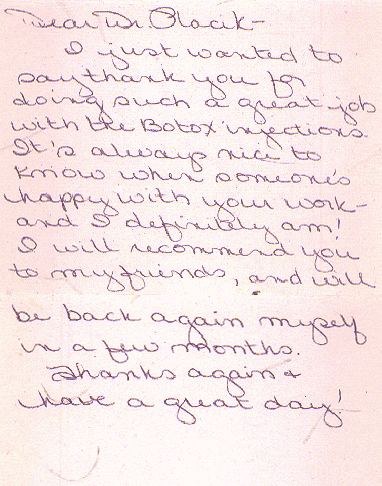 Dear Dr. Placik-
I just wanted to
say thank you for
doing such a great job
with the Botox injections.
It's always nice to
know when someone's
happy with your work-
and I definitely am!
I will recommend you
to my friends, and will
be back again myself
in a few months.
Thanks again &
have a great day!